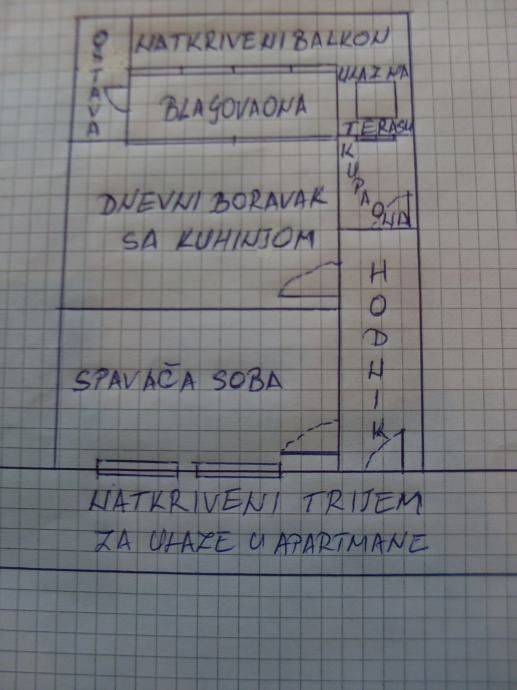 OSTAVA
NATKRIVENI BALKON
ULAZ NA
BLAGOVAONA
TERASU
KUPAONA
DNEVNI BORAVAK
SA KUHINJOM
HODNIK
SPAVAČA SOBA
NATKRIVENI TRIJEM
ZA ULAZE U APARTMANE